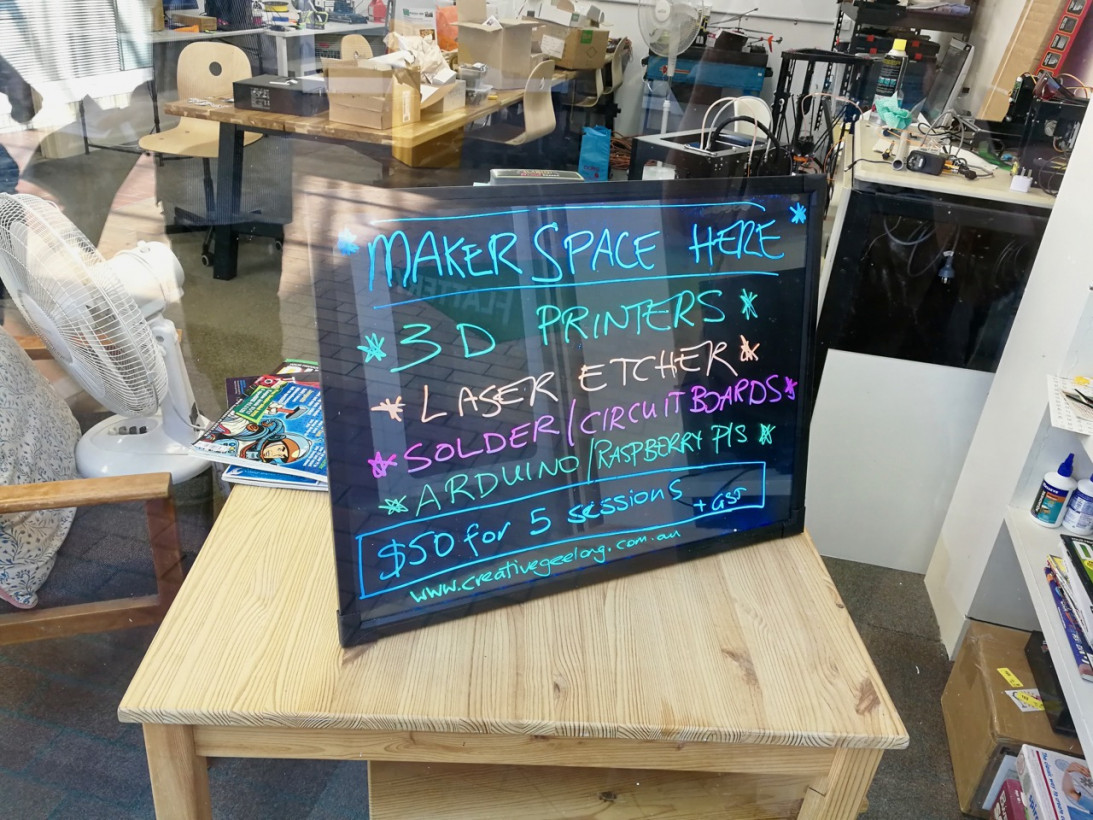 * MAKER SPACE HERE *
* 3D PRINTERS *
* LASER ETCHER *
* SOLDER/CIRCUIT BOARDS *
* ARDUINO/RASPBERRY PIS *
$50 for 5 sessions + GST
www.creativegeelong.com.au